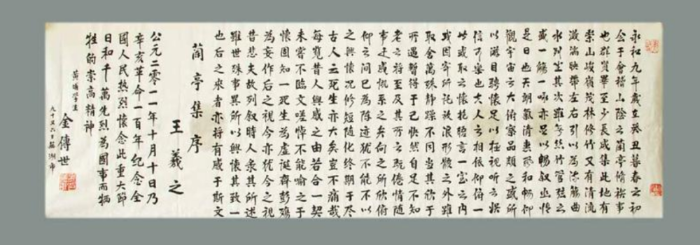 永和九年歲在癸丑暮春之初
會于會稽山陰之蘭亭脩禊事
也群賢畢至少長咸集此地有
崇山峻嶺茂林修竹又有清流
激湍映帶左右引以為流觴曲
水列坐其次雖無絲竹管弦之
盛一觴一詠亦足以暢敘幽情
是日也天朗氣清惠風和暢仰
觀宇宙之大俯察品類之盛所
以遊目騁懷足以極視聽之娛
信可樂也夫人之相與俯仰一
世或取諸懷抱悟言一室之內
或因寄所託放浪形骸之外雖
取舍萬殊靜躁不同當其欣于
所遇暫得于己快然自足不知
老之將至及其所之既倦情隨
事遷感慨系之矣向之所欣俯
仰之間已為陳迹猶不能不以
之興懷況修短隨化終期于盡
古人云死生亦大矣豈不痛哉
每覽昔人興感之由若合一契
未嘗不臨文嗟悼不能喻之于
懷固知一死生為虛誕齊彭殤
為妄作後之視今亦猶今之視
昔悲夫故列敘時人錄其所述
雖世殊事異所以興懷其致一
也後之來者亦將有感于斯文
蘭亭集序
王羲之
公元二零一一年十月十日乃
辛亥革命一百年紀念全
國人民熱烈懷念此重大節
日和千萬先烈為國事而犧
牲的崇高精神
黃埔學生
金傳世